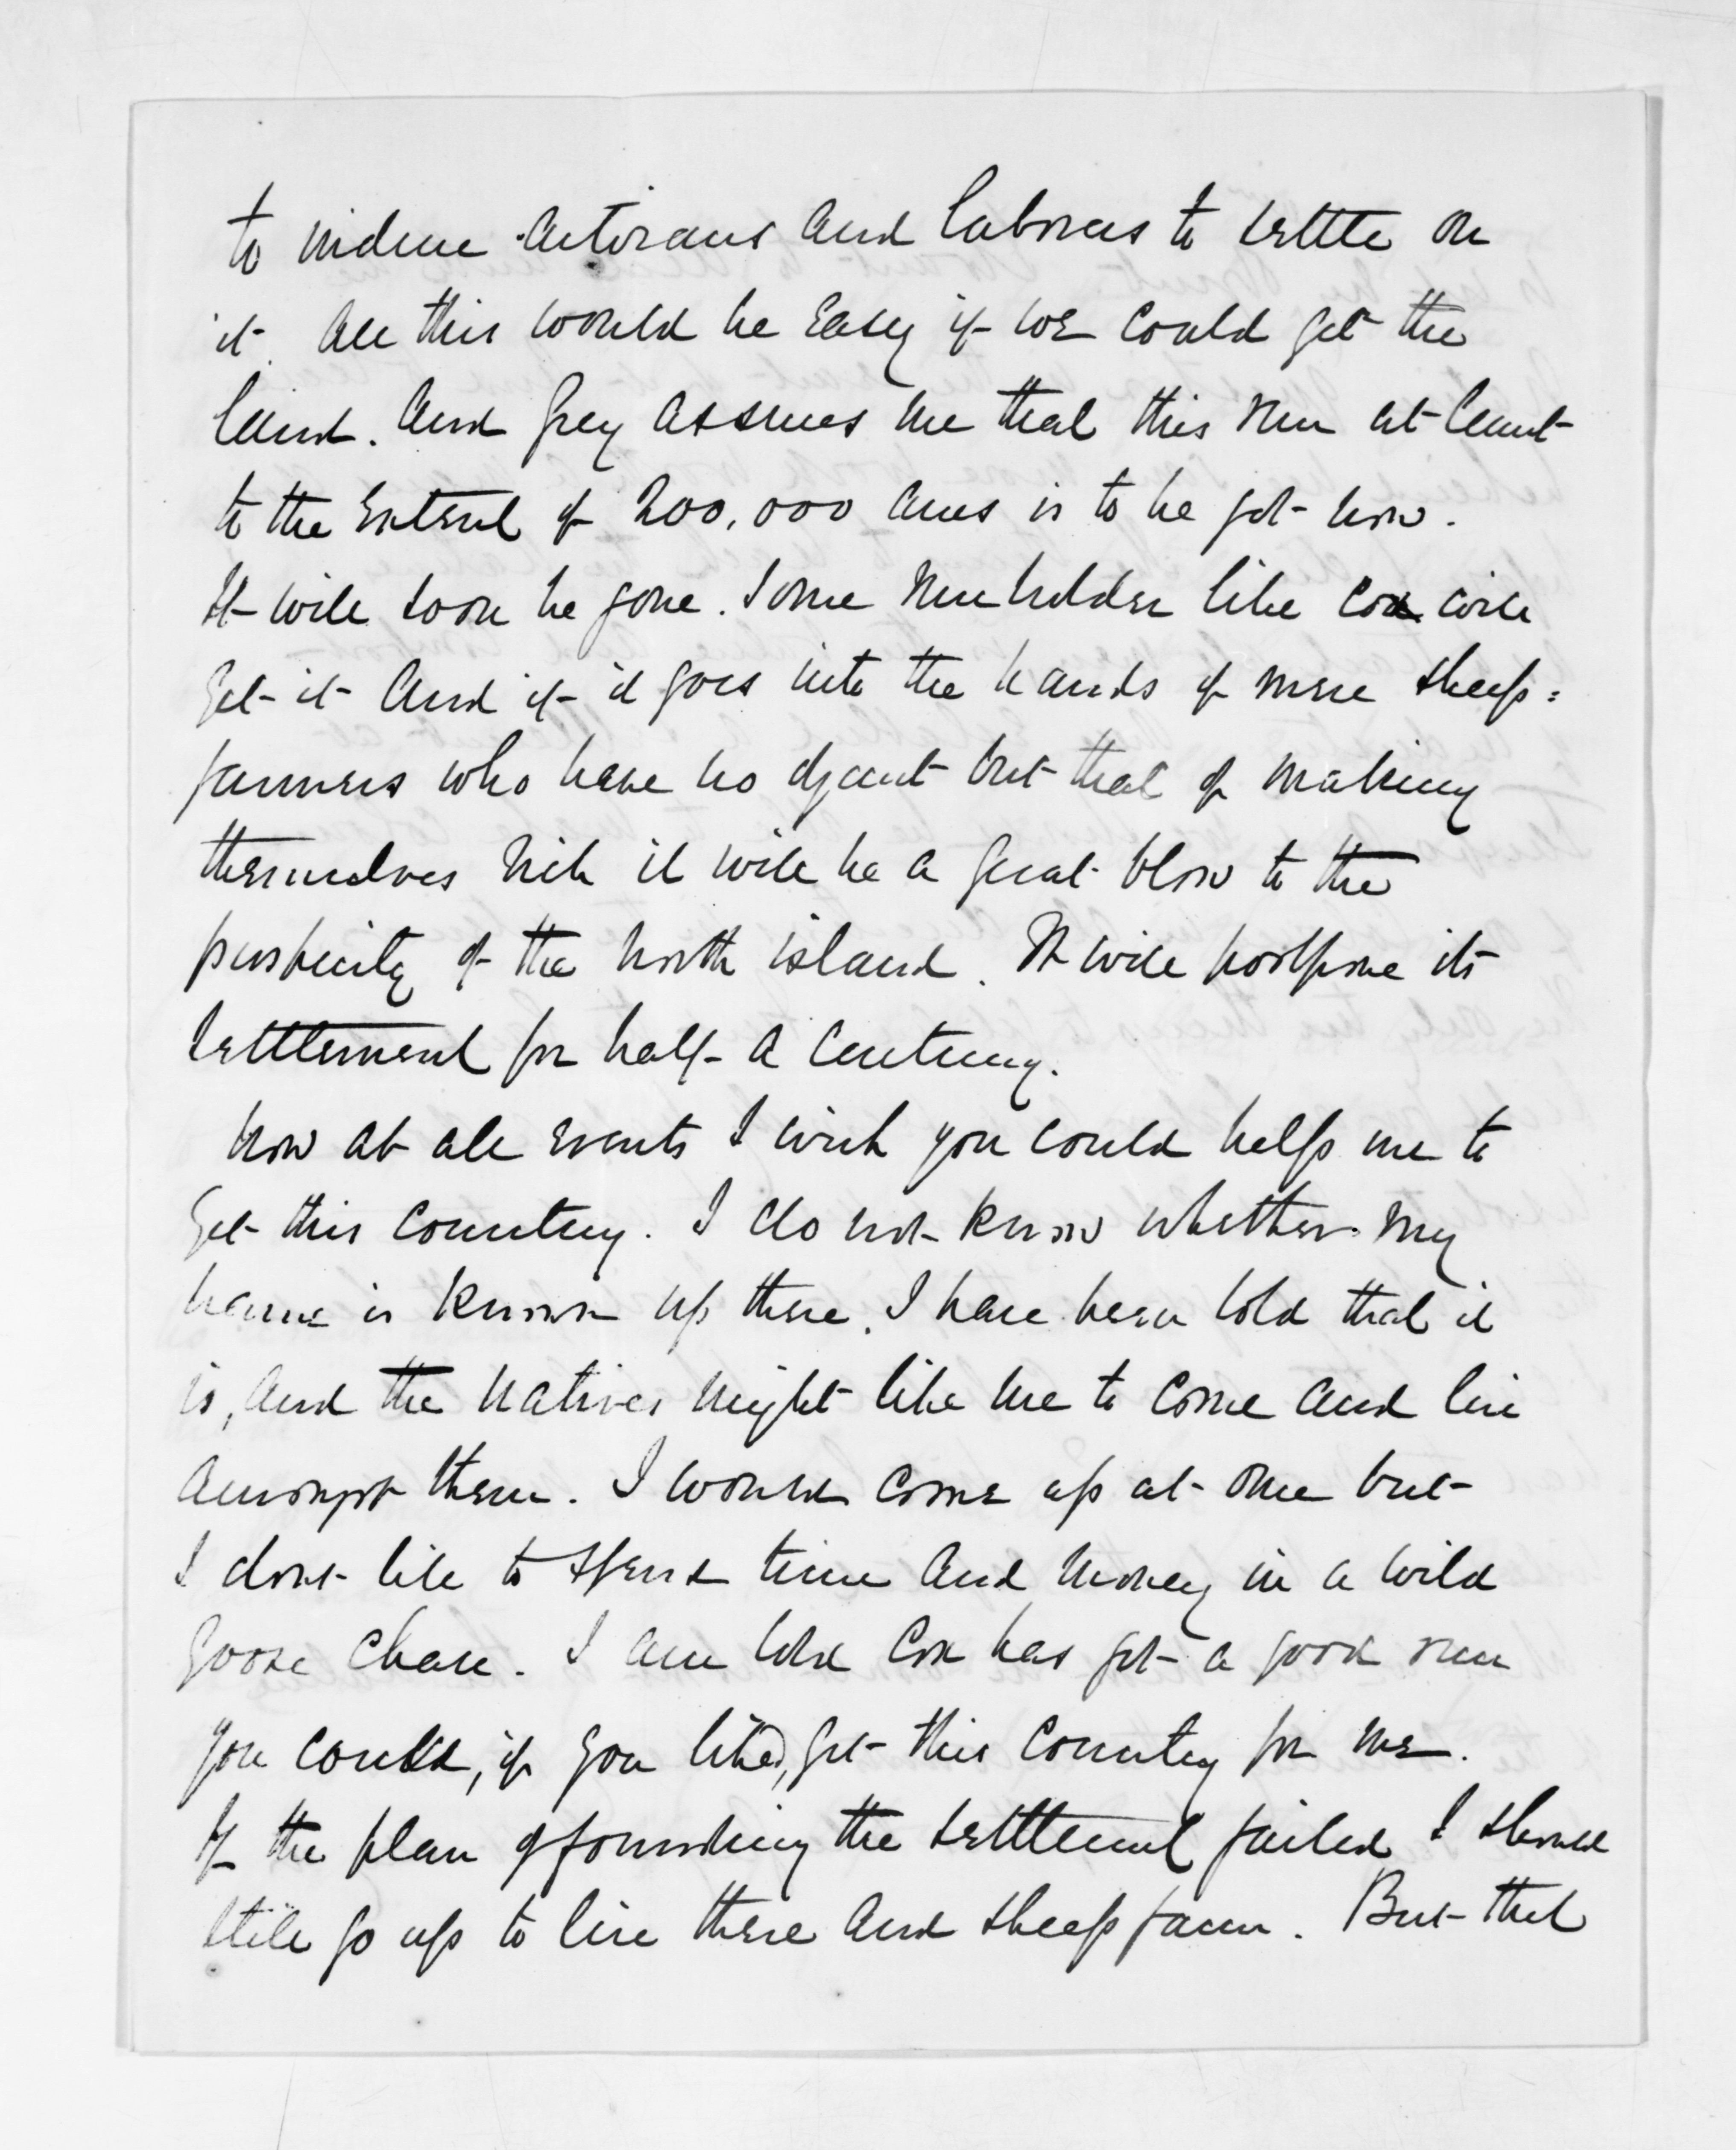 to induce artizans and laborers to settle on
it. All this would be easy if we could get the
land. And Grey assures me that this run at least
to the extent of 200,000 acres is to be got now.
It will soon be gone. Some runholder like Cox will
get it and if it goes into the hands of mere sheep=
farmers who have no object but that of making
themselves rich it will be a great blow to the
prosperity of the north island. It will postpone its
settlement for half a century.
Now at all events I wish you could help me to
get this country. I do not know whether my
name is known up there. I have been told that it
is, and the natives might like me to come and live
amongst them. I would come up at once but
I dont like to spend time and money in a wild
goose chase. I am told Cox has got a good run
you could, if you liked, get this country for me.
If the plan of founding the settlement failed I should
still go up to live there and sheep farm. But that